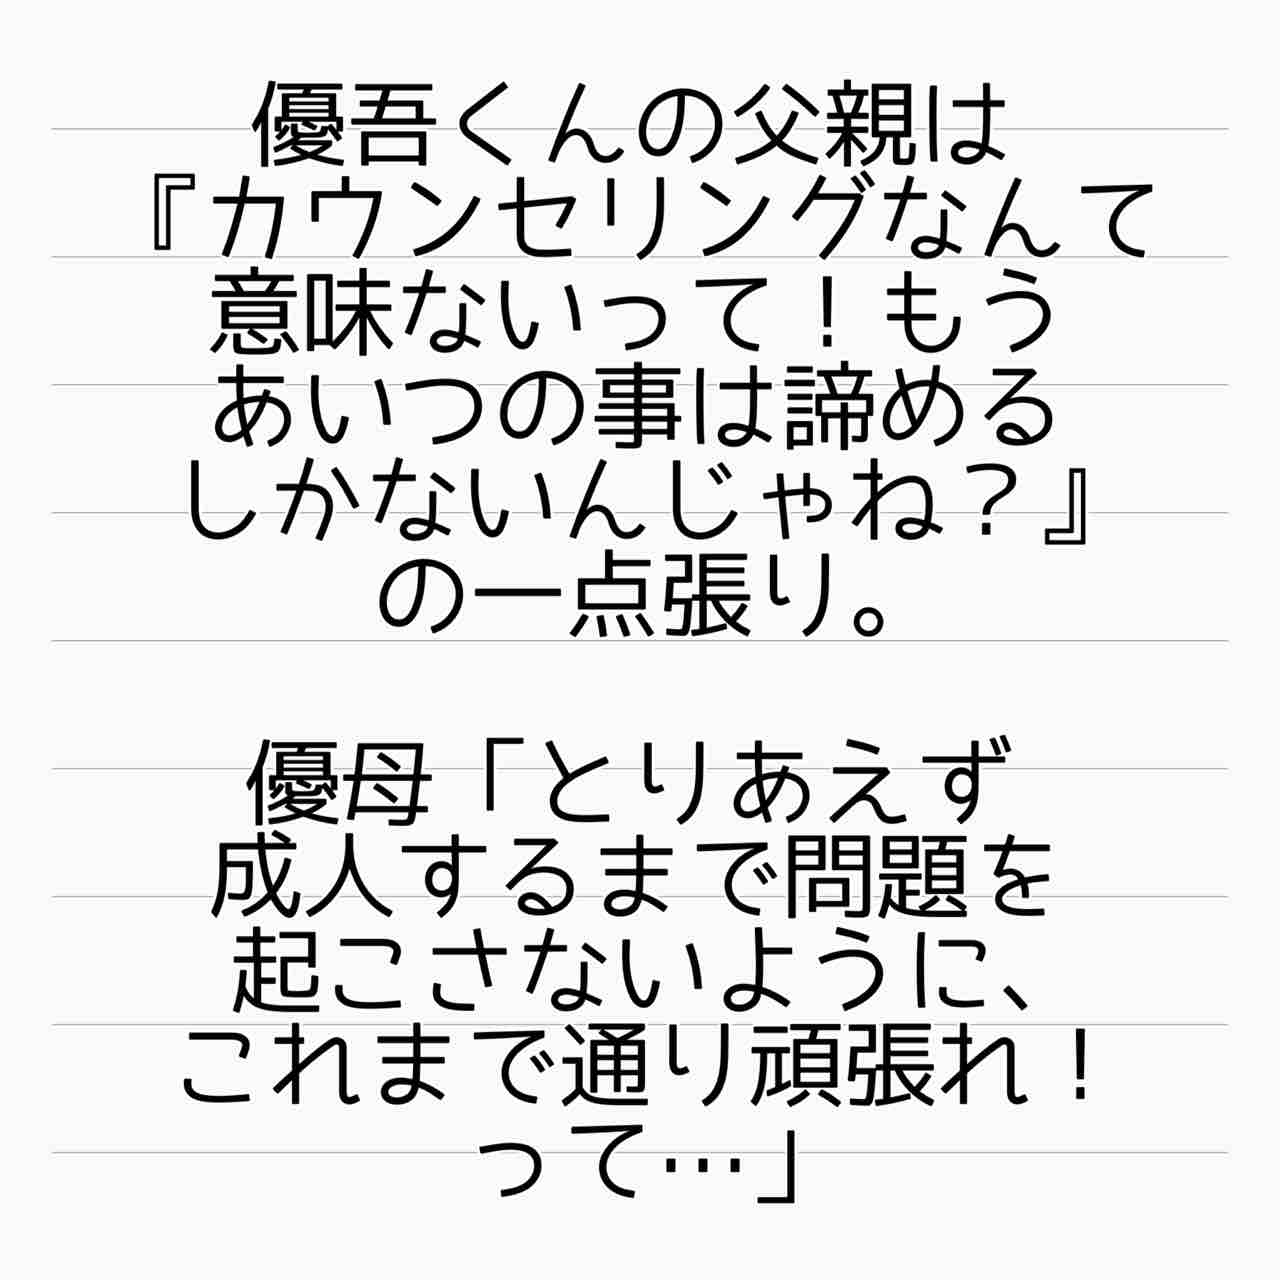 優吾くんの父親は
『カウンセリングなんて
意味ないって！もう
あいつの事は諦める
しかないんじゃね？』
の一点張り。
優母「とりあえず
成人するまで問題を
起こさないように、
これまで通り頑張れ！
って…」